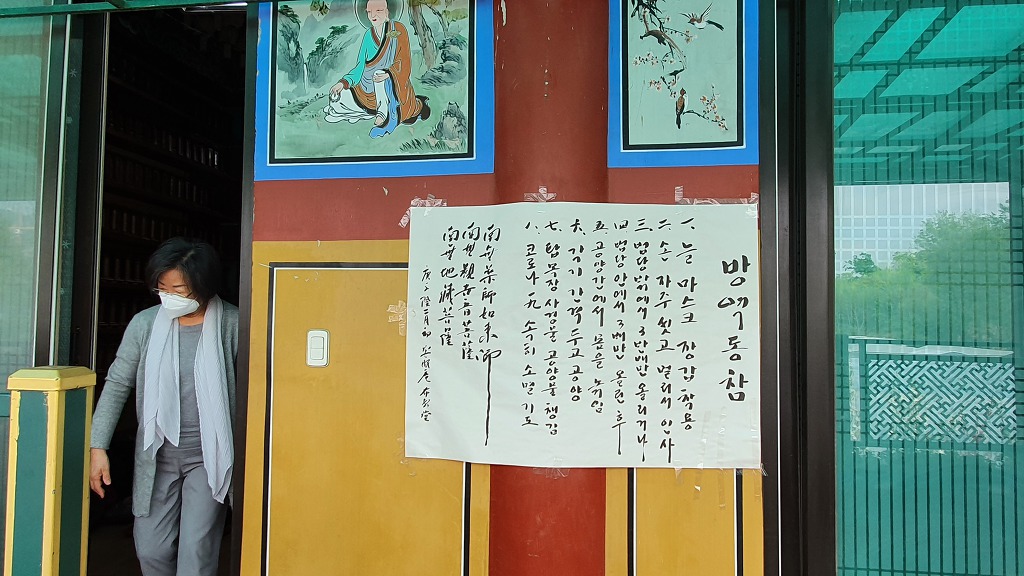 방역동참
一. 늘 마스크 장갑 착용
二. 손 자주 씻고 멀리서 인사
三. 법당밖에서 3반배만 올리거나
四. 법당 안에서 3배만 올린 후
五. 공양간에서 몸을 녹임
六. 각기 간격 두고 공양
七. 탑목장 사정물 공양물 챙김
八. 코로나一九 속히 소멸기도
南無藥師如來佛
南無觀音菩薩
南無地藏菩薩